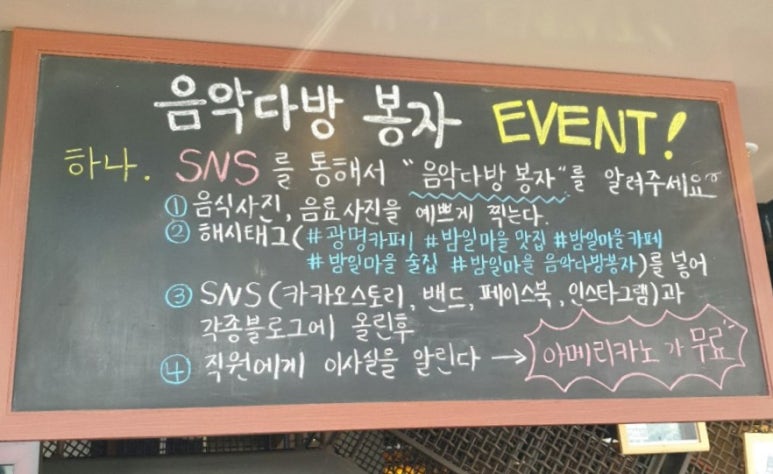 음악다방 봉자 EVENT!
하나. SNS를 통해서 "음악다방 봉자"를 알려주세요
① 음식사진, 음료사진을 예쁘게 찍는다.
② 해시태그(#광명카페 #밤일마을 맛집 #밤일마을카페
#밤일마을 술집 #밤일마을 음악다방봉자)를 넣어
③ SNS(카카오스토리, 밴드, 페이스북, 인스타그램)과
각종블로그에 올린후
④ 직원에게 이사실을 알린다 → 아메리카노가 무료